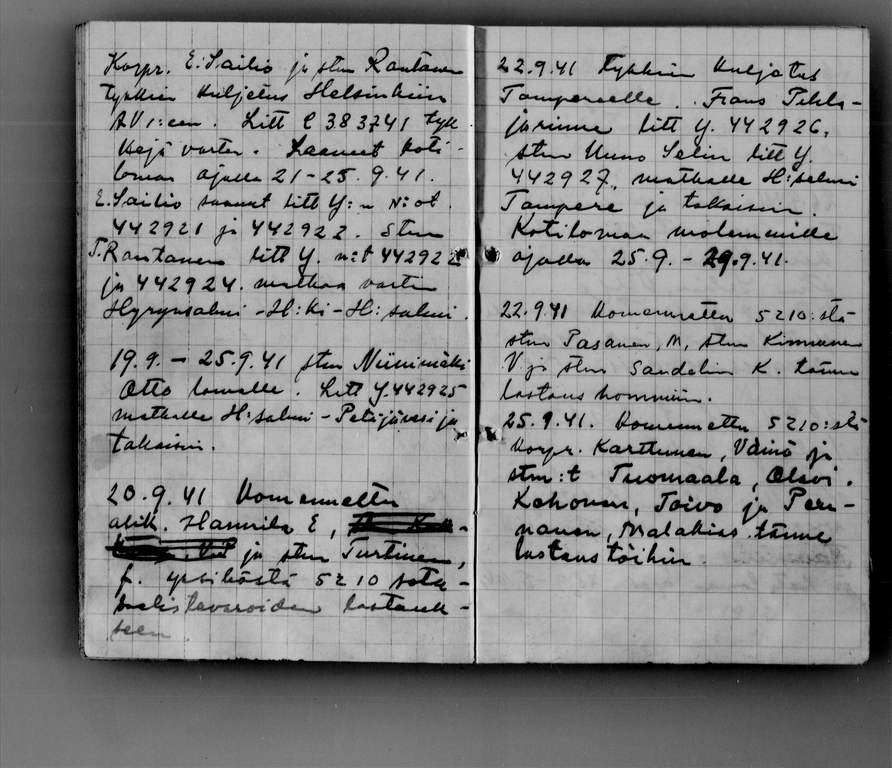 Korpr. E. Sailio ja stm Rantanen
tykkien kuljetus Helsinkiin
AV 1:een. Litt C 383741 tyk
kejä varten. Saaneet koti-
loman ajalla 21-25.9.41.
E. Sailio saanut litt Y:n N:ot
442921 ja 442922. Stm
T. Rantanen litt Y. n:t 442922
ja 442924. matkaa varten
Hyrynsalmi - H:ki - H:salmi.
19.9. - 25.9.41 stm Niinimäki
Otto lomalle. Litt Y.442925
matkalle H:salmi - Petäjävesi ja
takaisin.
20.9.41 Komennettu
alik. Hannila E,
ja stm Turtinen,
f. yksiköstä 5210 sota-
saalistavaroiden lastauk-
seen.
22.9.41 tykkien kuljetus
Tampereelle. Frans Tehla-
järinne litt Y. 442926,
stm Uuno Selin litt Y.
442927, matkalle H:salmi
Tampere ja takaisin.
Kotilomaa molemmille
ajalla 25.9. - 29.9.41.
22.9.41 Komennettu 5210:stä
stm Pasanen, M, stm Kinnunen
V ja stm Sandelin K. tänne
lastaus hommiin.
25.9.41. Komennettu 5210:stä
korpr. Karttunen, Väinö ja
stm:t Tuomaala, Olavi.
Kohonen, Toivo ja Pern-
nanen, Malakias tänne
lastaus töihin.